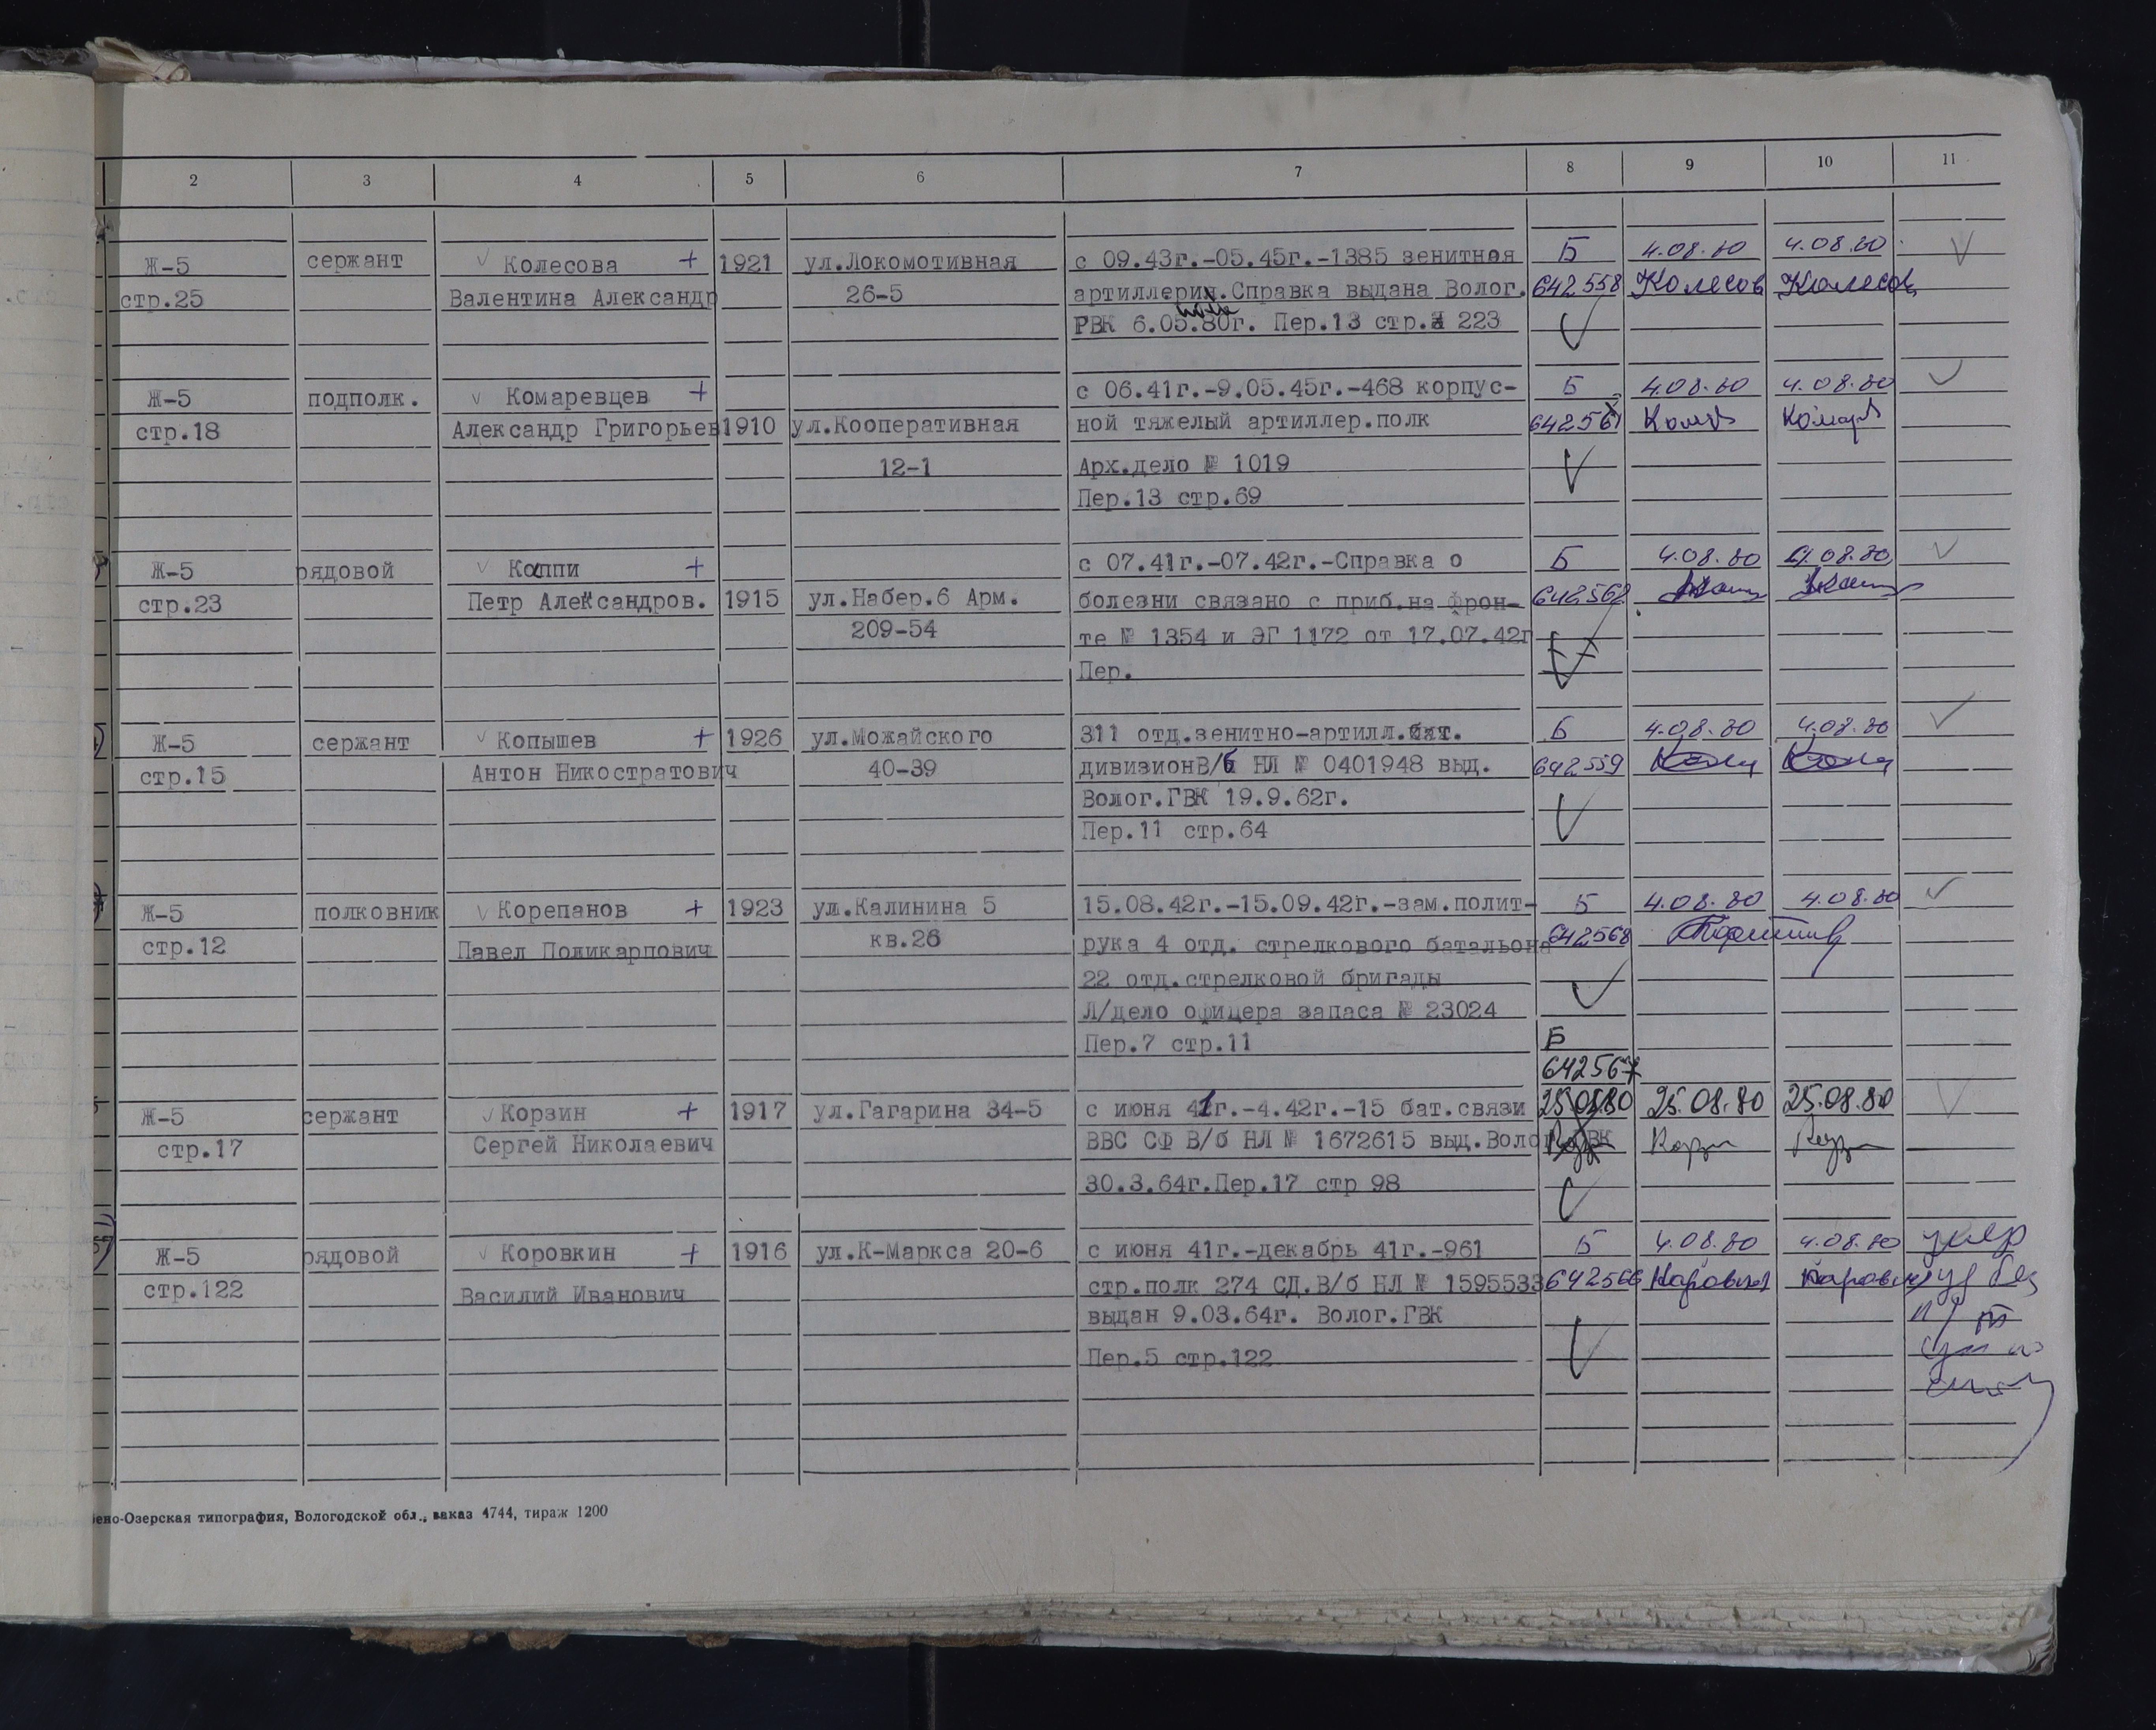 2 3 4 5 6 7 8 9 10 11
Ж-5 сержант Колесова + 1921 ул.Локомотивная с 09.43г.-05.45г.-1385 зенитная Б 4.08.80 4.08.80
стр.25 Валентина Александр 26-5 артиллерия.Справка выдана Волог. 642558 Колесов Колесов
РВК 6.05.80г. Пер.13 стр. 223
Ж-5 подполк. Комаревцев + с 06.41г.-9.05.45г.-468 корпус- Б 4.08.80 4.08.80
стр.18 Александр Григорьев 1910 ул.Кооперативная ной тяжелый артиллер.полк 642561
12-1 Арх.дело № 1019
Пер.13 стр.69
Ж-5 рядовой Коппи + с 07.41г.-07.42г.-Справка о Б 4.08.80 4.08.80
стр.23 Петр Александров. 1915 ул.Набер.6 Арм. болезни связано с приб.на фрон- 642562
209-54 те № 1354 и ЭГ 1172 от 17.07.42г
Пер.
Ж-5 сержант Копышев + 1926 ул.Можайского 311 отд.зенитно-артилл.бат. Б 4.08.80 4.08.80
стр.15 Антон Никостратович 40-39 дивизионВ/б НЛ № 0401948 выд. 642559
Волог.ГВК 19.9.62г.
Пер.11 стр.64
Ж-5 полковник Корепанов + 1923 ул.Калинина 5 15.08.42г.-15.09.42г.-зам.полит- Б 4.08.80 4.08.80
стр.12 Павел Поликарпович кв.26 рука 4 отд. стрелкового батальона 642568
22 отд.стрелковой бригады
Л/дело офицера запаса № 23024
Пер.7 стр.11 Б
642567
Ж-5 сержант Корзин + 1917 ул.Гагарина 34-5 с июня 41г.-4.42г.-15 бат.связи 25.08.80 25.08.80 25.08.80
стр.17 Сергей Николаевич ВВС СФ В/б НЛ № 1672615 выд.Волог ВК
30.3.64г.Пер.17 стр 98
Ж-5 рядовой Коровкин + 1916 ул.К-Маркса 20-6 с июня 41г.-декабрь 41г.-961 Б 4.08.80 4.08.80
стр.122 Василий Иванович стр.полк 274 СД.В/б НЛ № 1595533 642566
выдан 9.03.64г. Волог.ГВК
Пер.5 стр.122
ено-Озерская типография, Вологодской обл., заказ 4744, тираж 1200